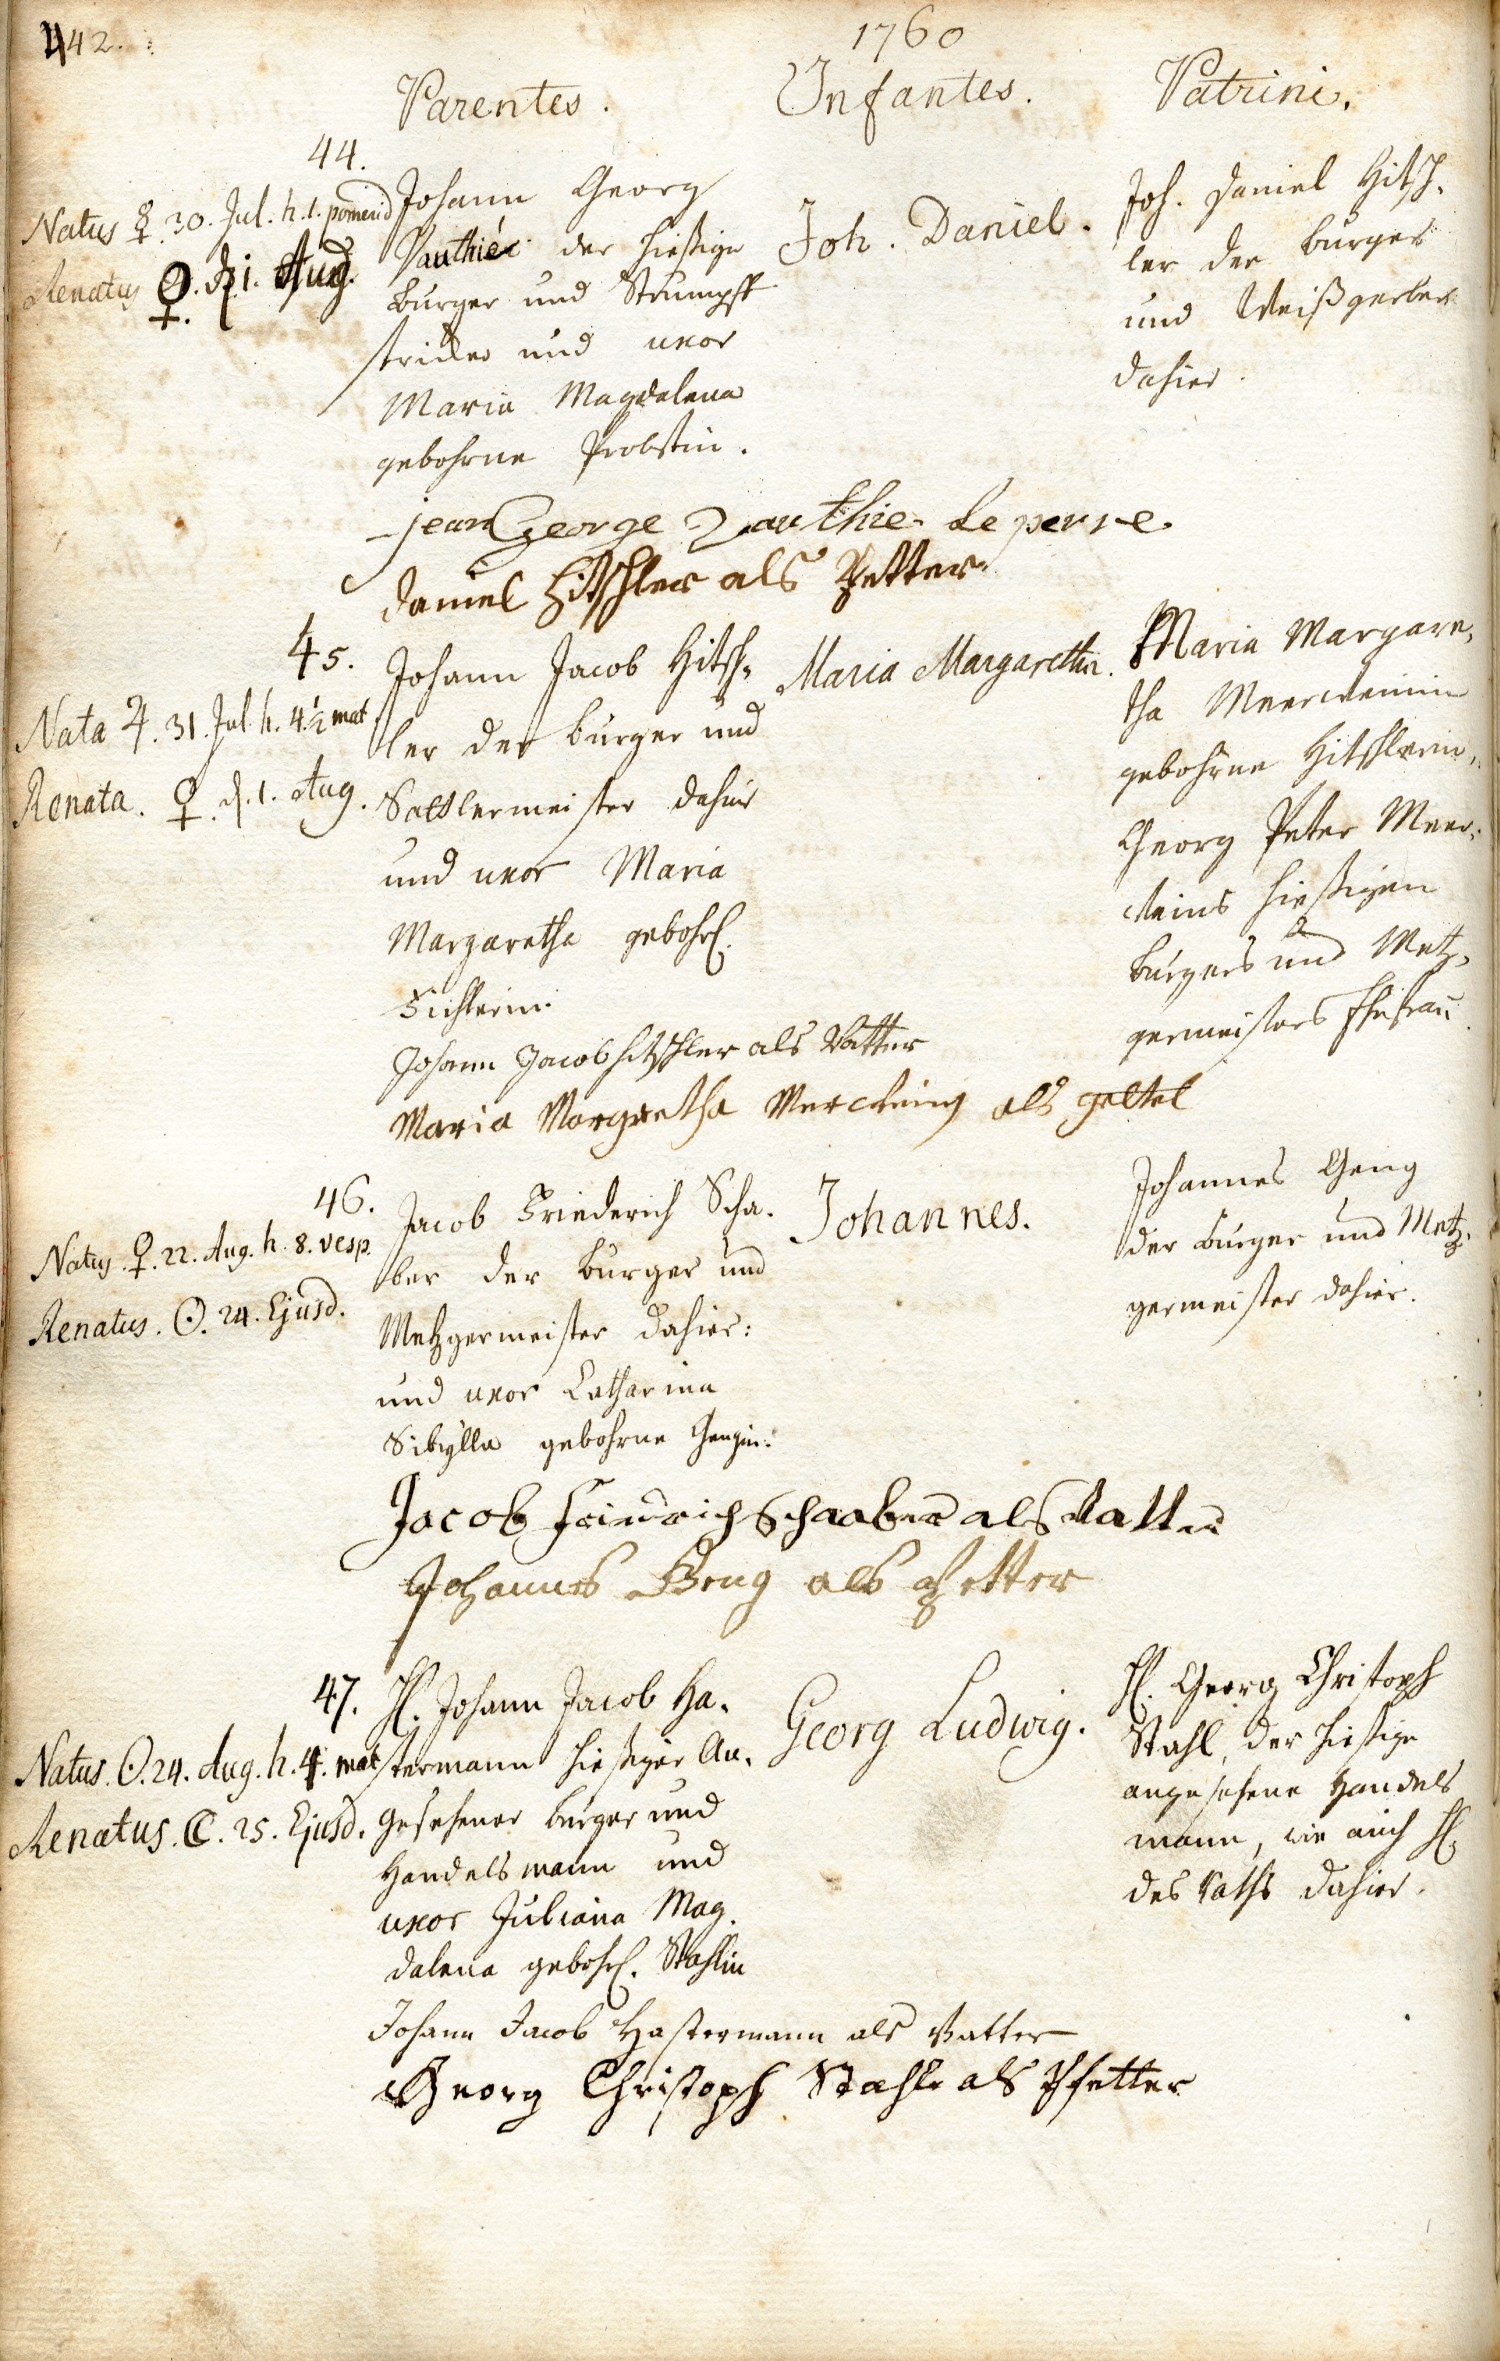 442.
1760
Parentes. Infantes. Patrini.
44.
Natus ☿. 30. Jul. h. 1. pomerid
Renatus ♀. d. 1. Aug.
Johann Georg
Vauthiér der hießige
Burger und Strumpff
stricker und uxor
Maria Magdalena
gebohrne Probstin.
Joh. Daniel.
Joh. Daniel Hitsch-
ler der burger
und Weißgerber
dahier.
jean George Vauthie le perre
Daniel Hitschler als Petter
45.
Nata ♃. 31. Jul. h. 4.½ mat
Renata. ♀. d. 1. Aug.
Johann Jacob Hitsch-
ler der burger und
Sattlermeister dahier
und uxor Maria
Margaretha gebohr.
Maria Margaretha.
Maria Margare-
tha Meerweinin
gebohrne Hitschlerin,
Georg Peter Meer-
weins hießigen
burgers und Metz-
germeisters Ehefrau
Johann Jacob Hitschler als Vatter
Maria Margretha Merweing als geltel
46.
Natus. ♀. 22. Aug. h. 8. vesp.
Renatus. ☉. 24. Ejusd.
Jacob Friederich Scha-
ber der burger und
Metzgermeister dahier:
und uxor Catharina
Sibylla gebohrne Gengin.
Johannes.
Johannes Geng
der burger und Metz-
germeister dahier.
Jacob Friedrich Schaaber als Vatter
Johannes Geng als Petter
47.
Natus. ☉. 24. Aug. h. 4. mat
Renatus. ☾. 25. Ejusd.
H. Johann Jacob Ha-
stermann hießiger An-
gesehener burger und
Handelsmann und
uxor Juliana Mag-
dalena gebohr. Stahlin
Georg Ludwig.
H. Georg Christoph
Stahl, der hießige
angesehene Handels
mann, wie auch H.
des Raths dahier.
Johann Jacob Hastermann als Vatter
Georg Christoph Stahl als Pfetter